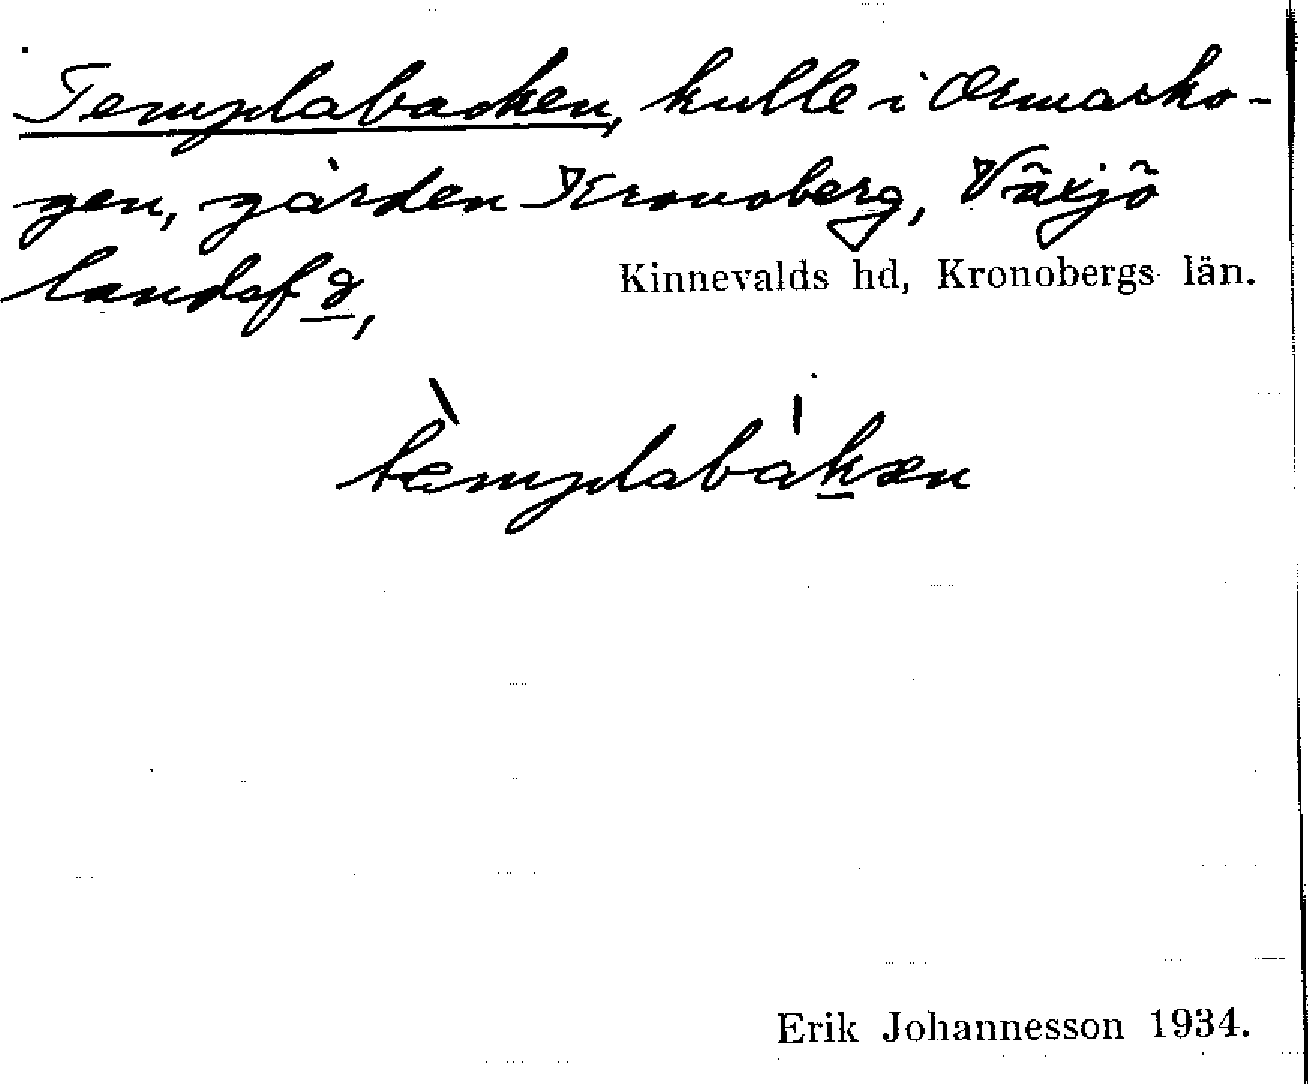 Templabacken, kulle i Ormasko-
gen, gården Kronoberg, Växjö
landsf g,
Kinnevalds hd, Kronobergs län.
tæmplabakæn
Erik Johannesson 1934.